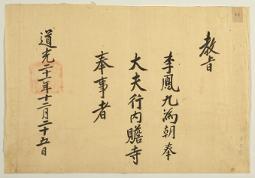 教旨
李鳳九爲朝奉
大夫行內贍寺
奉事者
道光二十一年十二月二十五日